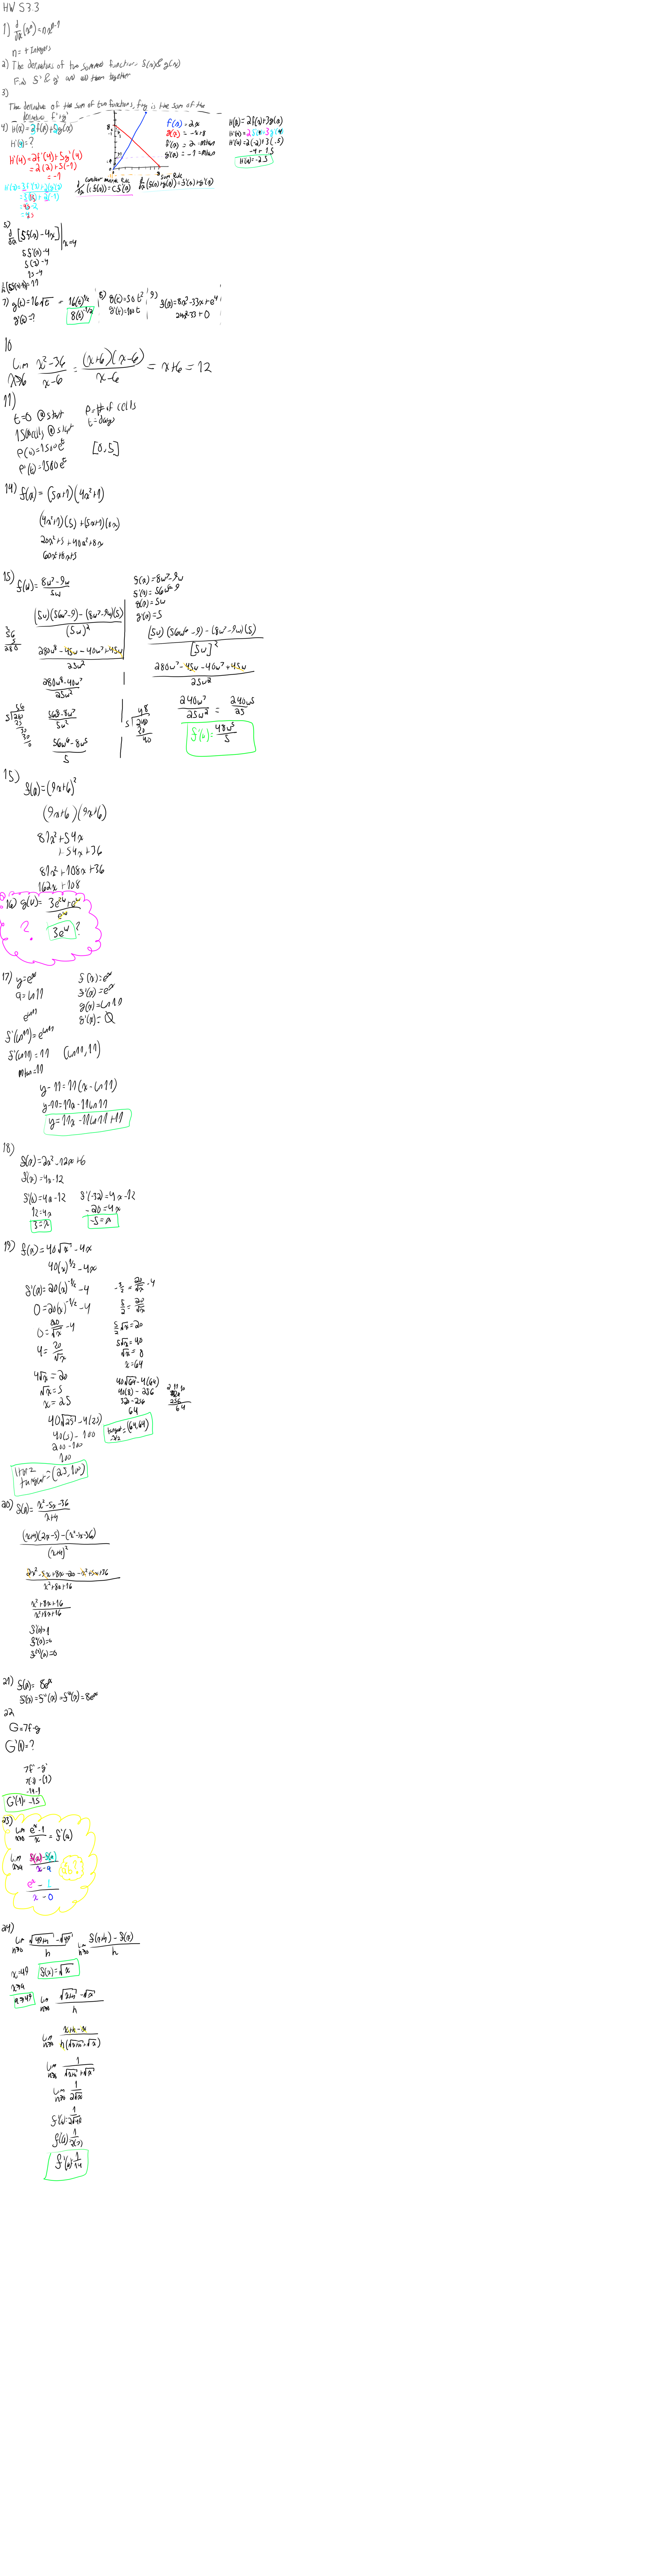 HW S3.3
1) d/dx (xⁿ) = nxⁿ⁻¹
n = + Integers
2) The derivative of two summed functions f(x) & g(x)
Find f' & g' and add them together
3)
The derivative of the sum of two functions, f+g is the sum of the
derivative f'+g'
4) H(x) = 2f(x)+5g(x)
H'(4) = ?
H'(4) = 2f'(4)+5g'(4)
= 2(2)+5(-1)
= -1
f(x) = 2x
g(x) = -x+8
f'(x) = 2
g'(x) = -1
constant multiple rule
d/dx (cf(x)) = cf'(x)
sum rule
d/dx (f(x)+g(x)) = f'(x)+g'(x)
H(x) = 2f(x)+3g(x)
5)
d/dx [5f(x)-4x] | x=4
5f'(x)-4
15-4
7) g(t) = 16√t = 16(t)^1/2
g'(t) = ?
8(t)^-1/2
8) g(t) = 50t²
g'(t) = 100t
9) f(x) = 8x³-33x+e⁴
24x²-33+0
10
Lim x→6 x²-36/x-6 = (x+6)(x-6)/x-6 = x+6 = 12
11)
t=0 @ start
P = # of cells
t = days
1500 cells @ start
P(t) = 1500eᵗ
[0,5]
P'(t) = 1500eᵗ
14) f(x) = (5x+1)(4x²+1)
(4x²+1)(5)+(5x+1)(8x)
20x²+5+40x²+8x
60x²+8x+5
15) f(w) = 8w⁷-9w/5w
f(x) = 8w⁷-9w
f'(x) = 56w⁶-9
g(x) = 5w
g'(x) = 5
(5w)(56w⁶-9)-(8w⁷-9w)(5)/(5w)²
280w⁷-45w-40w⁷+45w/25w²
280w⁷-40w⁷/25w²
56w⁶-8w⁵/5
(5w)(56w⁶-9)-(8w⁷-9w)(5)/[5w]²
280w⁷-45w-40w⁷+45w/25w²
240w⁷/25w² = 240w⁵/25
f'(w) = 48w⁵/5
15)
f(x) = (9x+6)²
(9x+6)(9x+6)
81x²+54x
+54x+36
81x²+108x+36
162x+108
16) g(w) = 3e²ʷ+eʷ/eʷ
? 3eʷ ?
17) y=eˣ
a=ln11
e^ln11
f(x) = eˣ
f'(x) = eˣ
g(x) = ln11
g'(x) = 0
f'(ln11) = e^ln11
f'(ln11) = 11 (ln11, 11)
mtan = 11
y-11 = 11(x-ln11)
y-11 = 11x-11ln11
y = 11x-11ln11+11
18)
f(x) = 2x²-12x+6
f'(x) = 4x-12
f'(0) = 4x-12
12 = 4x
3 = x
f'(-32) = 4x-12
-20 = 4x
-5 = x
19) f(x) = 40√x-4x
40(x)^1/2-4x
f'(x) = 20(x)^-1/2-4
0 = 20(x)^-1/2-4
0 = 20/√x-4
4 = 20/√x
4√x = 20
√x = 5
x = 25
40√25-4(25)
40(5)-100
200-100
100
Horz tangent = (25,100)
-3/2 = 20/√x-4
5/2 = 20/√x
5/2√x = 20
5√x = 40
√x = 8
x = 64
40√64-4(64)
40(8)-256
320-256
64
tangent -3/2 = (64,64)
20) f(x) = x²-5x-36/x+4
(x+4)(2x-5)-(x²-5x-36)/(x+4)²
2x²-5x+8x-20-x²+5x+36/x²+8x+16
x²+8x+16/x²+8x+16
f'(x) = 1
f''(x) = 0
f'''(x) = 0
21) f(x) = 8eˣ
f'(x) = f''(x) = f'''(x) = 8eˣ
22
G=7f-g
G'(1) = ?
7f'-g'
7(-2)-(1)
-14-1
G'(1) = -15
23)
Lim x→0 eˣ-1/x = f'(a)
Lim x→a f(x)-f(a)/x-a
eˣ-1/x-0
24)
Lim h→0 √49+h-√49/h
Lim h→0 f(x+h)-f(x)/h
x=49
f(x) = √x
x→a
a→49
Lim h→0 √x+h-√x/h
Lim h→0 x+h-x/h(√x+h+√x)
Lim h→0 1/√x+h+√x
Lim h→0 1/2√x
f'(a) = 1/2√49
f'(a) = 1/2(7)
f'(a) = 1/14